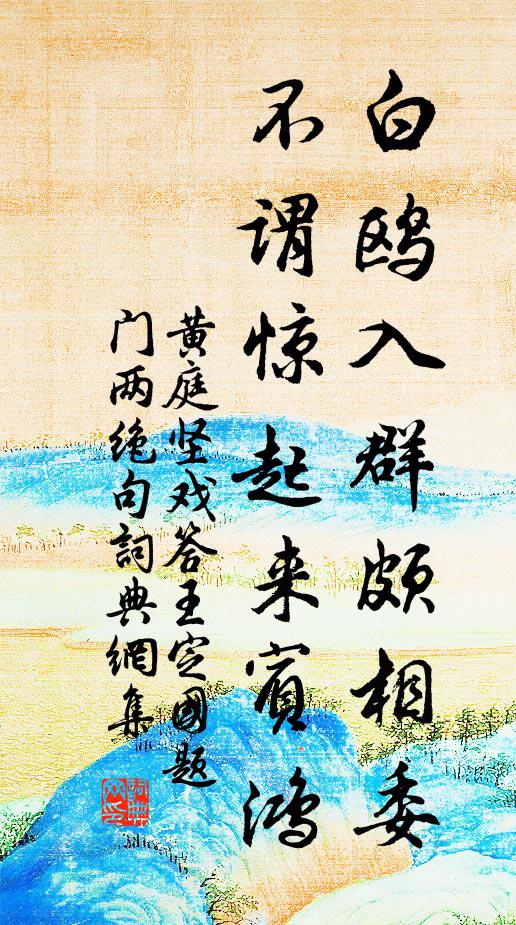 白鸥入群颇相委
不谓惊起来宾鸿
黄庭坚戏答王定國题
门两绝句詞典網集